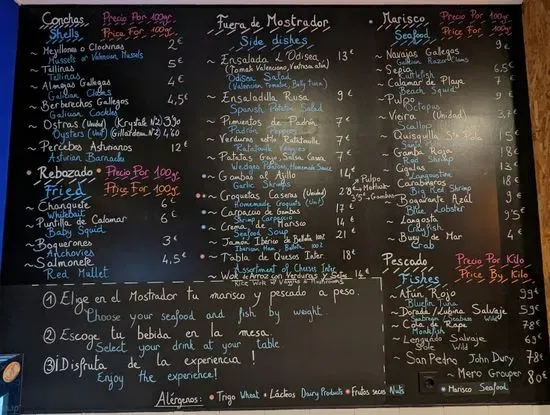 Conchas Precio Por 100gr
Shells Price For 100gr
~ Mejillones o Clochinas 2€
Mussels or Valencian Mussels
~ Tellinas 5€
Tellinas
~ Almejas Gallegas 4€
Galician Clams
~ Berberechos Gallegos 4,5€
Galician Cockles
~ Ostras (Unidad) (Krystale Nº2) 3,90
Oysters (Unit) (Gillardeau Nº2) 4,60
~ Percebes Asturianos 12€
Asturian Barnacles
Rebozado Precio Por 100gr
Fried Price For 100gr
~ Chanquete 6€
Whitebait
~ Puntilla de Calamar 6€
Baby Squid
~ Boquerones 3€
Anchovies
~ Salmonete 4,5€
Red Mullet
Fuera de Mostrador
Side dishes
~ Ensalada L'Odisea 13€
(Tomate Valenciano, Ventresca atún)
Odisea Salad
(Valencian Tomatoe, Belly tuna)
~ Ensaladilla Rusa 9€
Spanish Potatoe Salad
~ Pimientos de Padrón 7€
Padrón Peppers
~ Verduras estilo Ratatouille 7€
Ratatouille Veggies
~ Patatas Gajo, Salsa Casera 7€
Wedges Potatoes, Homemade Sauce
~ Gambas al Ajillo 14€
Garlic Shrimps
~ Croquetas Caseras (Unidad) 2,8€
Homemade Croquets (Unit)
~ Carpaccio de Gambas 17€
Shrimp Carpaccio
~ Crema de Marisco 14€
Seafood Soup
~ Jamón Ibérico de Bellota 100% 21€
Iberian Ham, Bellota 100%
~ Tabla de Quesos Inter 18€
Assortment of Cheeses Inter
~ Wok de Arroz con Verduras y Setas 14€
Rice Wok of Veggies & Mushrooms
Marisco Precio Por 100gr
Seafood Price For 100gr
~ Navajas Gallegas 9€
Galician Razor Clams
~ Sepia 6,5€
Cuttlefish
~ Calamar de Playa
Beach Squid
~ Pulpo 9€
Octopus
~ Vieira (Unidad)
Scallop
~ Quisquilla Sta Pola
~ Gamba Roja 18€
Red Shrimp
~ Cigalas 13€
Langoustine
~ Carabineros 18€
Big Red Shrimp
~ Bogavante Azul 9€
Blue Lobster
~ Langosta 9'5€
Crayfish
~ Buey de Mar 4€
Crab
Pescado Precio Por Kilo
Fishes Price By Kilo
~ Atún Rojo 99€
Bluefin Tuna
~ Dorada/Lubina Salvaje 59€
Seabream/Seabass Wild
~ Cola de Rape 78€
Monkfish
~ Lenguado Salvaje 63€
Sole Wild
~ San Pedro John Dory 78€
~ Mero Grouper 80€
① Elige en el Mostrador tu marisco y pescado a peso.
Choose your seafood and fish by weight.
② Escoge tu bebida en la mesa.
Select your drink at your table.
③ ¡Disfruta de la experiencia!
Enjoy the experience!
Alérgenos: Trigo Wheat Lácteos Dairy Products Frutos secos Nuts
Marisco Seafood